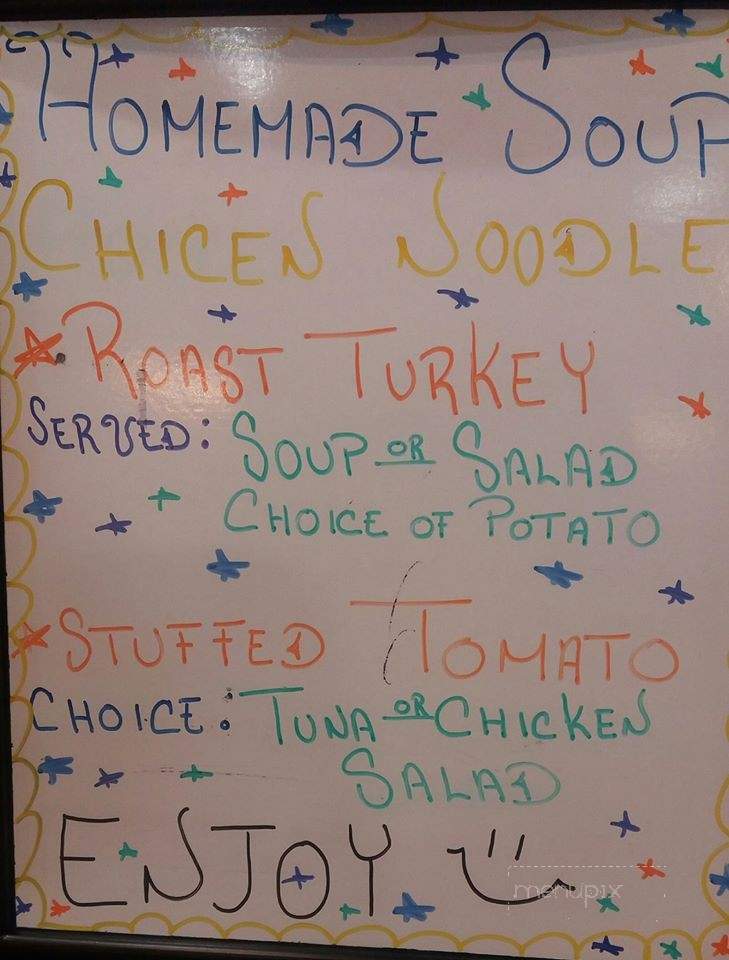 HOMEMADE SOUP
CHICEN NOODLE
ROAST TURKEY
SERVED: SOUP OR SALAD
CHOICE OF POTATO
STUFFED TOMATO
CHOICE: TUNA OR CHICKEN
SALAD
ENJOY
menupix